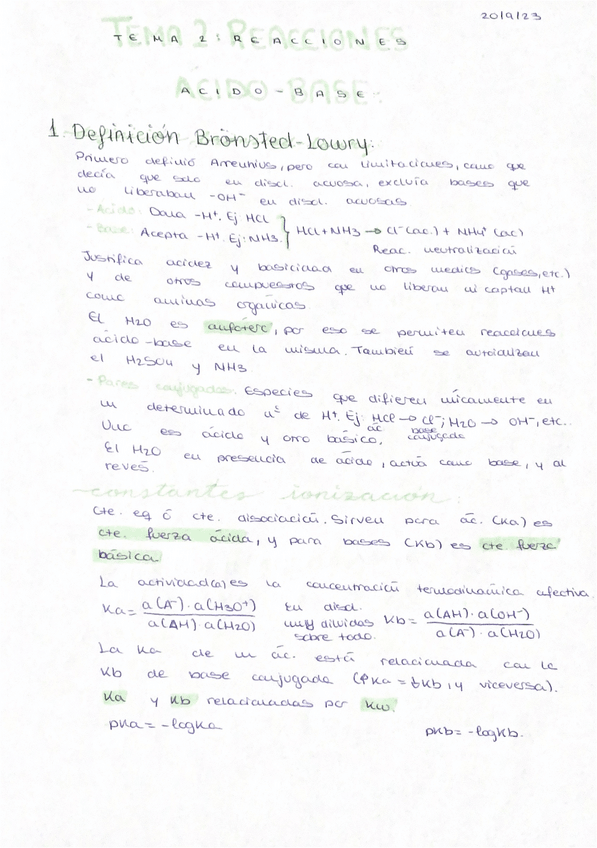 20/9/23
TEMA 2: REACCIONES
ACIDO-BASE:
1. Definición Brönsted-Lowry:
Primero definió Arrenhius, pero con limitaciones, como que
decía que solo en disol. acuosa, excluía bases que
no liberaban -OH⁻ en disol. acuosas
- Ácido: Dona -H⁺. Ej HCl
- Base: Acepta -H⁺. Ej: NH3.
HCl + NH3 → Cl⁻(ac.) + NH4⁺ (ac)
Reac. neutralización
Justifica acidez y basicidad en otros medios (gases, etc.)
y de otros compuestos que no liberan ni captan H⁺
como aminas orgánicas.
El H2O es anfótero, por eso se permiten reacciones
ácido-base en la misma. También se autoionizan
el H2SO4 y NH3.
- Pares conjugados: Especies que difieren únicamente en
un determinado nº de H⁺. Ej: HCl → Cl⁻; H2O → OH⁻, etc..
ác base conjugada
Uno es ácido y otro básico.
El H2O en presencia de ácido, actúa como base, y al
revés.
~constantes ionización:
Cte. eq ó cte. disociación. Sirven para ác. (Ka) es
cte. fuerza ácida, y para bases (Kb) es cte fuerza
básica
La actividad(a) es la concentración termodinámica efectiva.
Ka = a(A⁻) · a(H3O⁺) / a(AH) · a(H2O) En disol. muy diluidas sobre todo. Kb = a(AH) · a(OH⁻) / a(A⁻) · a(H2O)
La Ka de un ác. está relacionada con la
Kb de base conjugada (↑Ka = ↓Kb, y viceversa).
Ka y Kb relacionadas por Kw.
pKa = -logKa pKb = -logKb.